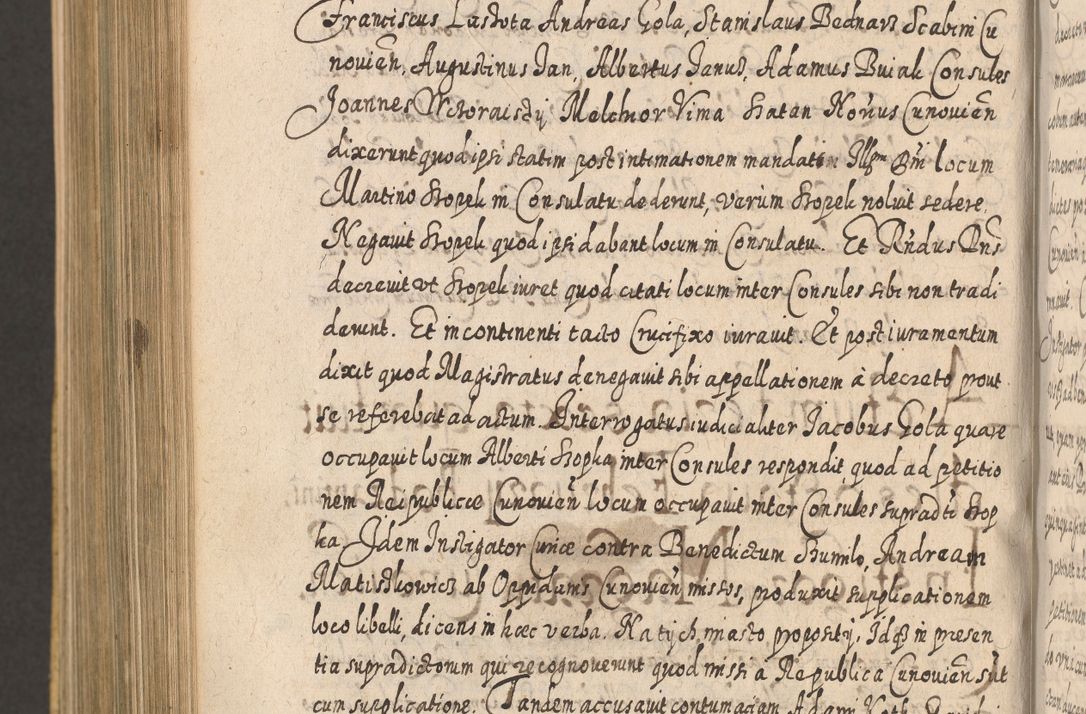 Franciscus Lassota Andreas Gola, Stanislaus Bednarz Scabini Cu
novien̄, Augustinus Jan, Albertus Janus, Adamus Buiak Consules
Joannes Wctoraisdij Melchior Vima Statan Nonus Cunovien̄
dixerunt quod ipsi statim post intimationem mandati Illm̄ Dn̄i locum
Martino Kropek in Consulatu dederunt, verum Kropek noluit sedere.
Negavit Kropek quod ipsi dabant locum in Consulatu. Et Rn̄dus Dn̄s
decrevit ut Kropek iuret quod citati locum inter Consules sibi non tradi
derunt. Et in continenti tacto Crucifixo iuravit. Et post iuramentum
dixit quod Magistratus denegavit sibi appellationem à decreto prout
se referebat ad actum. Interrogatus iudicialiter Jacobus Gola quare
occupavit locum Alberti Kropka inter Consules respondit, quod ad petitio
nem Reipublicæ Cunovien̄ locum occupavit inter Consules supradti Krop
ka Idem Instigator Curiæ contra Benedictum Kumilo, Andream
Matiskowicz ab Oppidanis Cunovien̄ missos, produxit supplicationem
loco libelli, dicens in hæc verba. Na tych miasto propositij. Idq̄ in presen
tia supradictorum qui recognoverunt quod missi a Republica Cunovien̄ sūt
cum supplicatione. Tandem accusavit contumaciam Adami